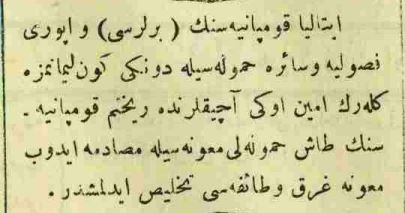 ایتالیا قومپانیه‌سنك ( برلرسی ) و اپوری
فصولیه و سائره حموله‌سیله دونكی كون لیمانمزه
كله‌رك امین اوكی آچیقلرنده ریختم قومپانیه -
سنك طاش حموله‌لی معونه‌سیله مصادمه ایدوب
معونه غرق و طائفه‌سی تخلیص ایدلمشدر .